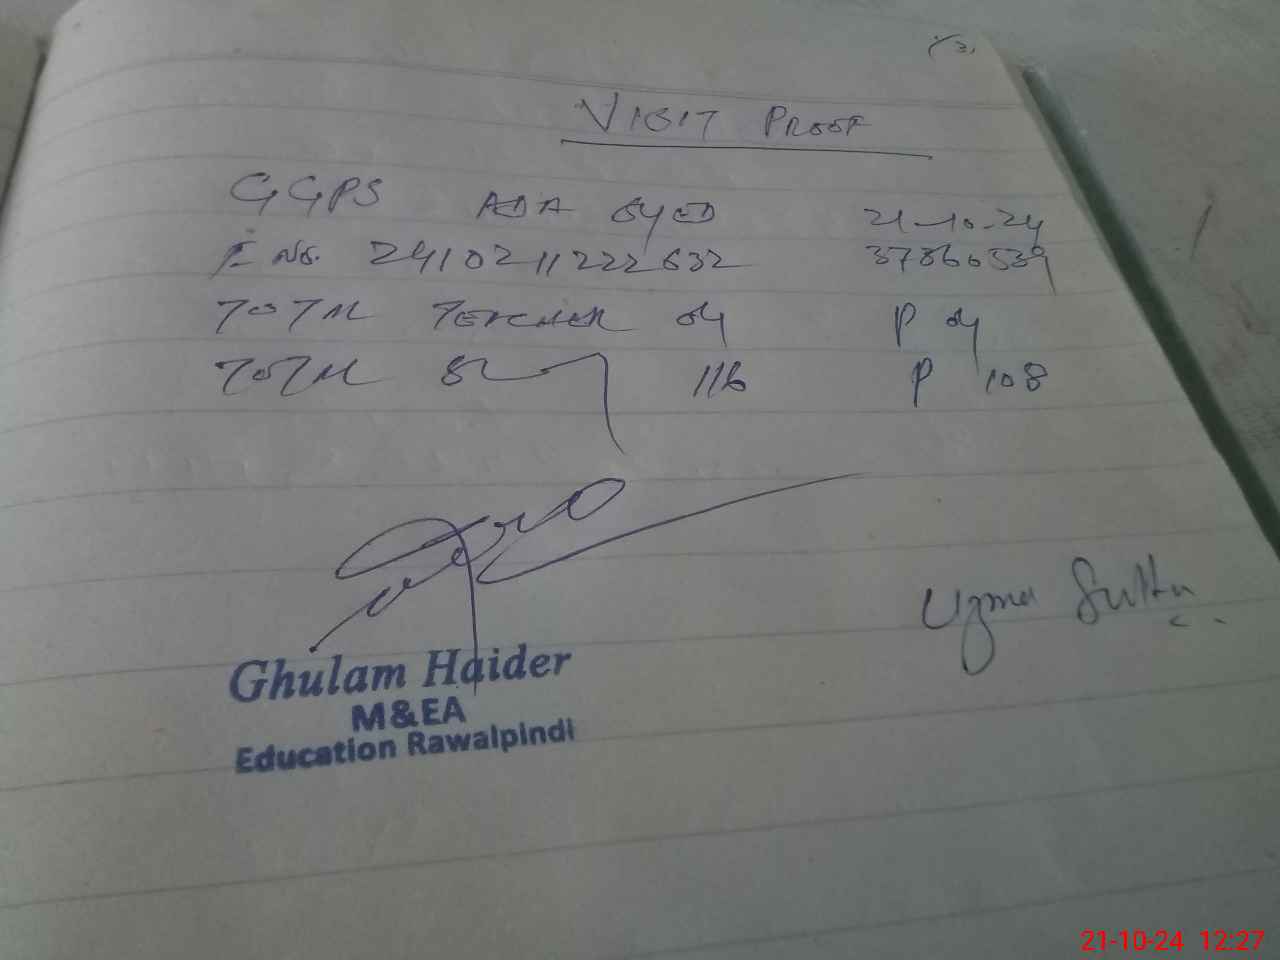 VISIT PROOF
GGPS ADA SYED 21-10-24
I No. 2410211222632 37360539
TOTAL TEACHER 04 P 04
TOTAL 116 P 108
Uzma Sultan
Ghulam Haider
M&EA
Education Rawalpindi
21-10-24 12:27